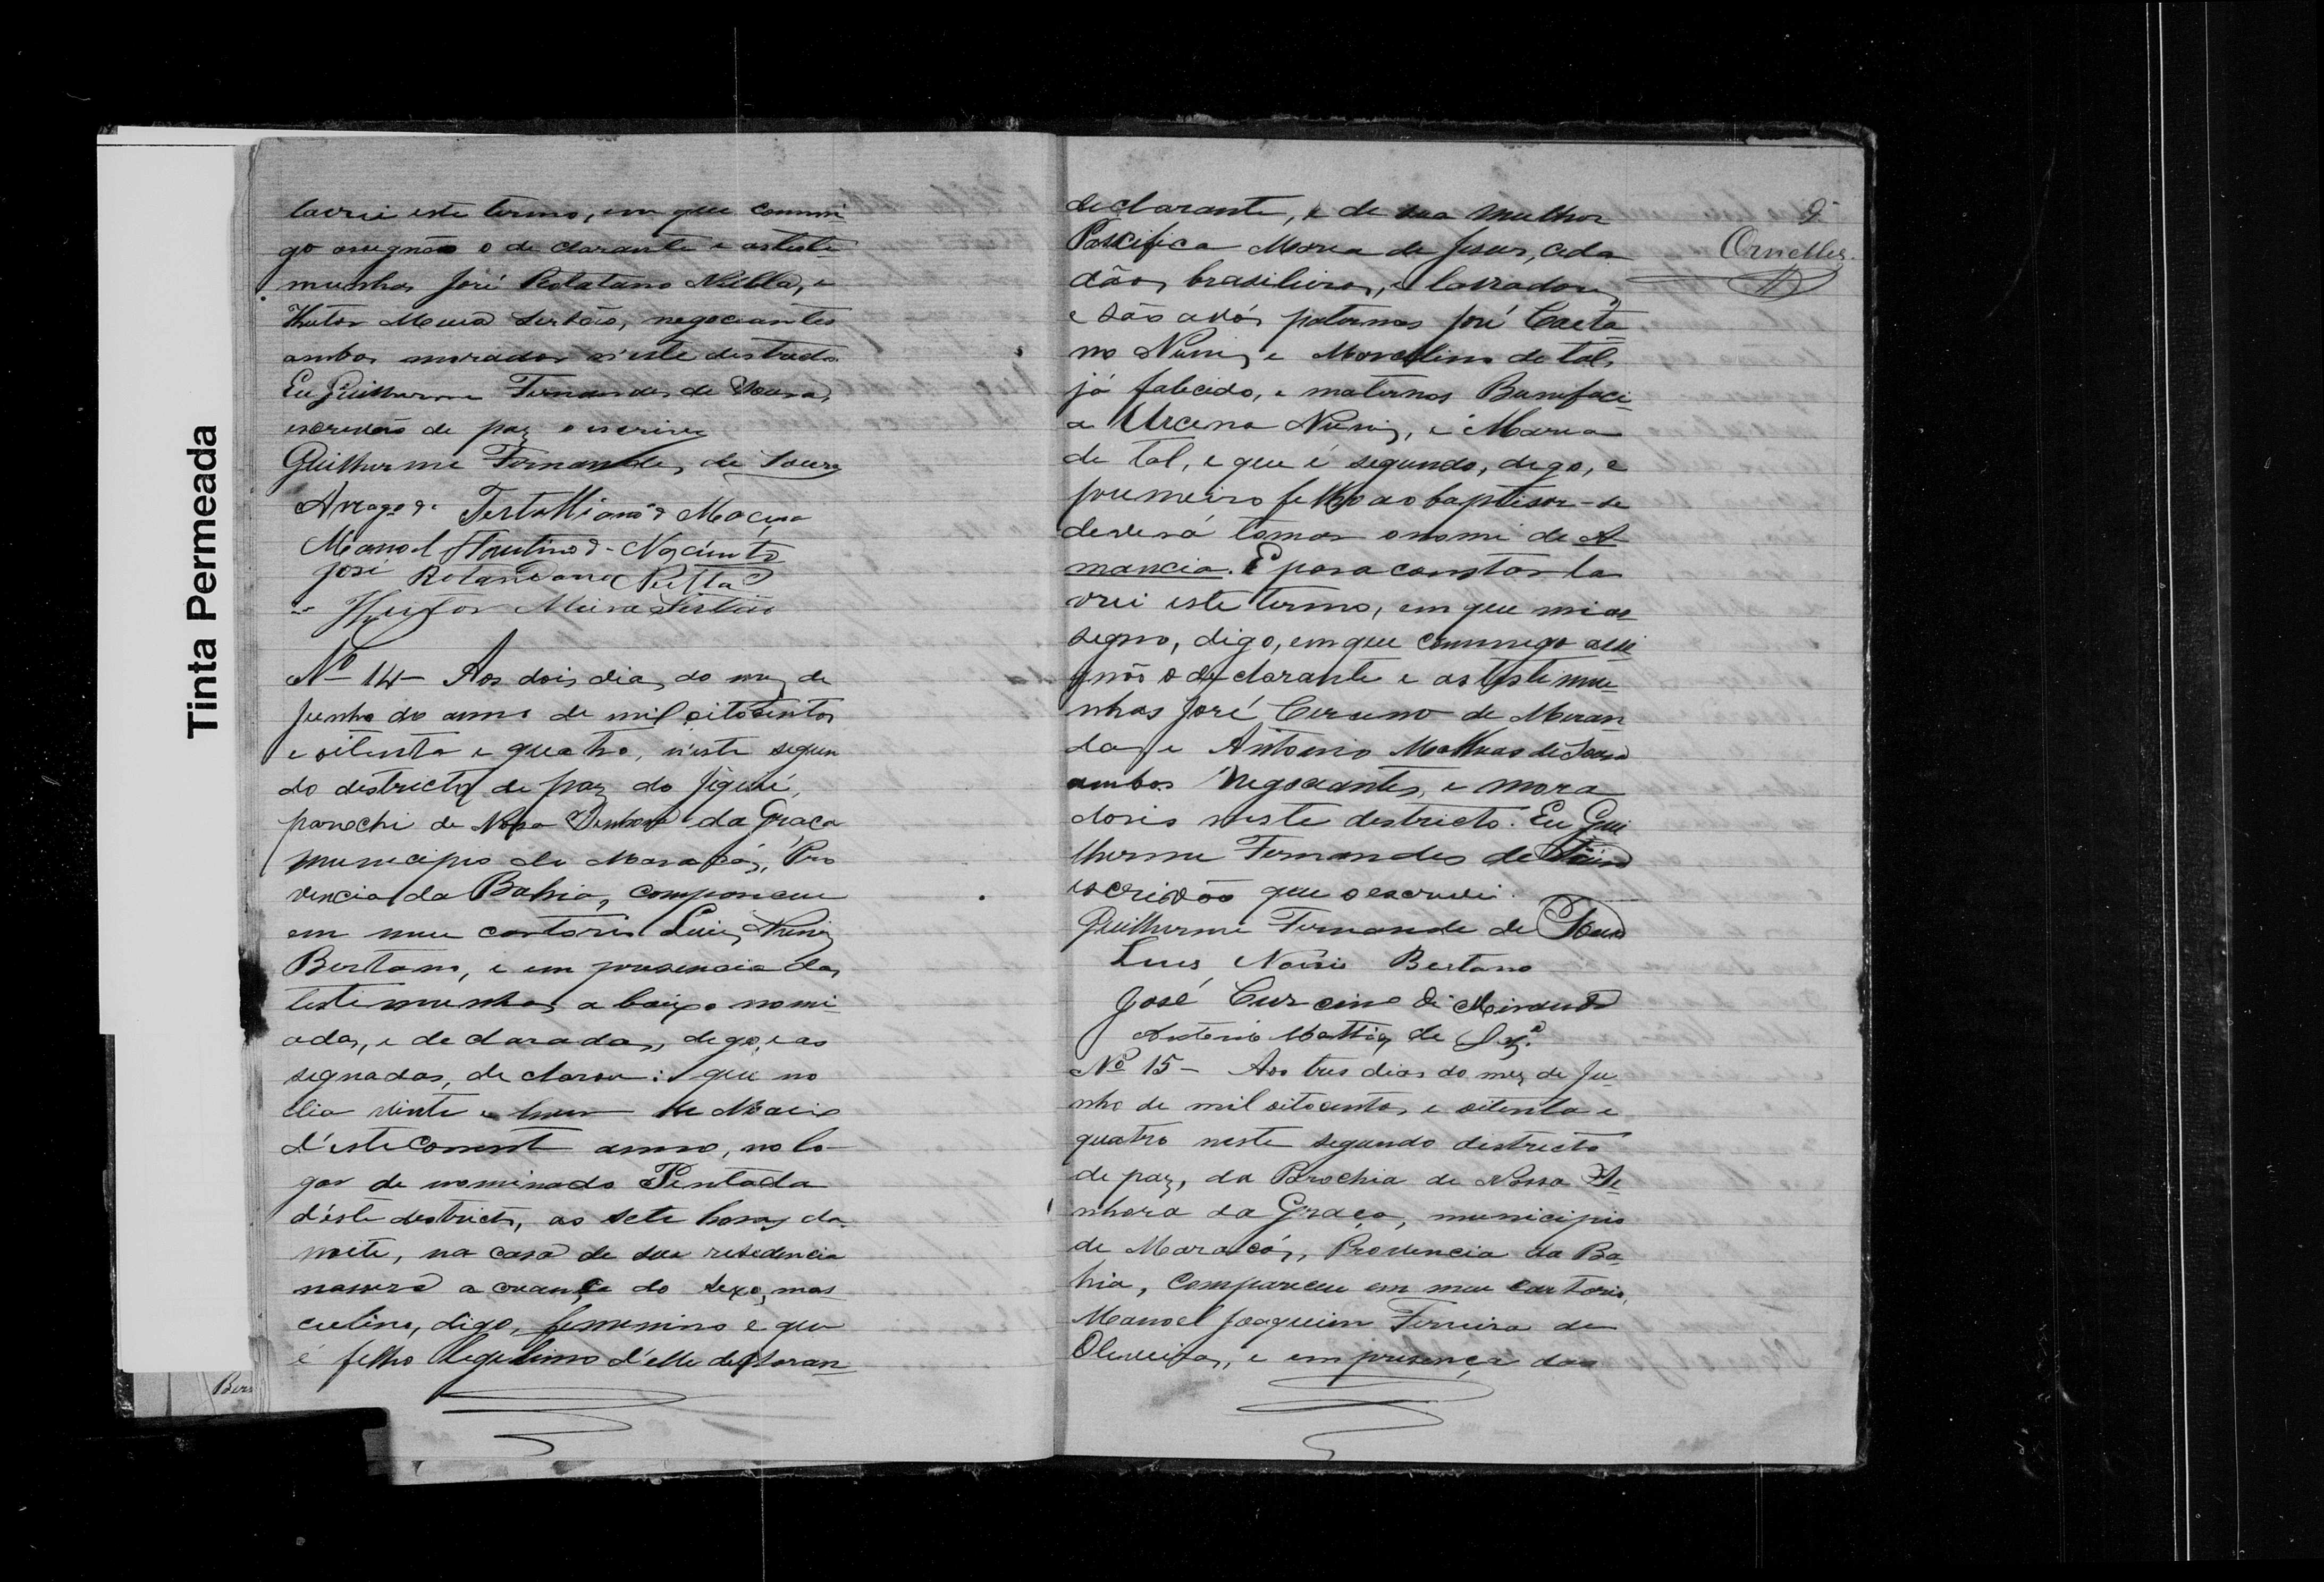 Tinta Permeada
lavrei este termo, em que commi
go assegnão o declarante e as teste-
munhas José Rotatano Niella, e
Heitor Meira Sertão, negociantes
ambos morador n'este destricto
Eu Guilherme Fernandes de Souza,
escrevão de paz o escrivy
Guilherme Fernandes de Souza
Arrago de Tertulliano de
Manoel Faustino de Nascimento
José Rotandano Niella
Heitor Meira Sertão
Nº 14 – Aos dois dias do mez de
Junho do anno de mil oitocentos
e oitenta e quatro, n'este segun
do destricto de paz do Jiquié,
parochi de Nossa Senhora da Graça
municipio de Maracás, Pro
vencia da Bahia, compareceu
em meu cartorio Luis Nunis
Bertano, e em presencia das
testemunhas a baixo nomi-
adas, e declaradas, dego, e as
segnadas, declarou: que no
dia vinte e hum de Maio
d'este corrent anno, no lo-
gar denominado Pintada
d'este destricto, as sete horas da
noite, na casa de sua residencia
nascera a creança do sexo mas
culino, digo, femenino e que
é filho legitimo d'elle declaran
declarante, e de sua mulher
Pascifica Maria de Jesus, cida
dãos brasileiros, e lavradores
e são avós paternos José Caeta
no Nunis e Marcelina de tal,
já falicido, e maternos Bonifaci-
a Urcena Nunis, e Maria
de tal, e que é segundo, dego, e
premeiro filho ao baptisar-se
deverá tomar o nomi de A
mancia. E para constar la
vrei este termo, em que mi as
segno, digo, em que commego assi
gnão o declarante e as testemu-
nhas José Curcino de Miran
da, e Antonio Mathias de Souza
ambos negociantes, e mora
doris neste destricto. Eu Gui
lherme Fernandes de Souza
escrivão que o escrevi.
Guilherme Fernande de Souza
Luis Nunis Bertano
José Curcino di Miranda
Antonio Mattias de Sz.ª
Nº 15 – Aos tres dias do mez de Ju-
nho de mil oitocentos e oitenta e
quatro neste segundo districto
de paz, da Parochia de Nossa Se-
nhora da Graça, municipio
de Maracás, Provencia da Ba-
hia, Compareceu em meu cartorio,
Manoel Joaquim Ferreira de
Oliveira, e em presença das
9
Ornellas
Bern